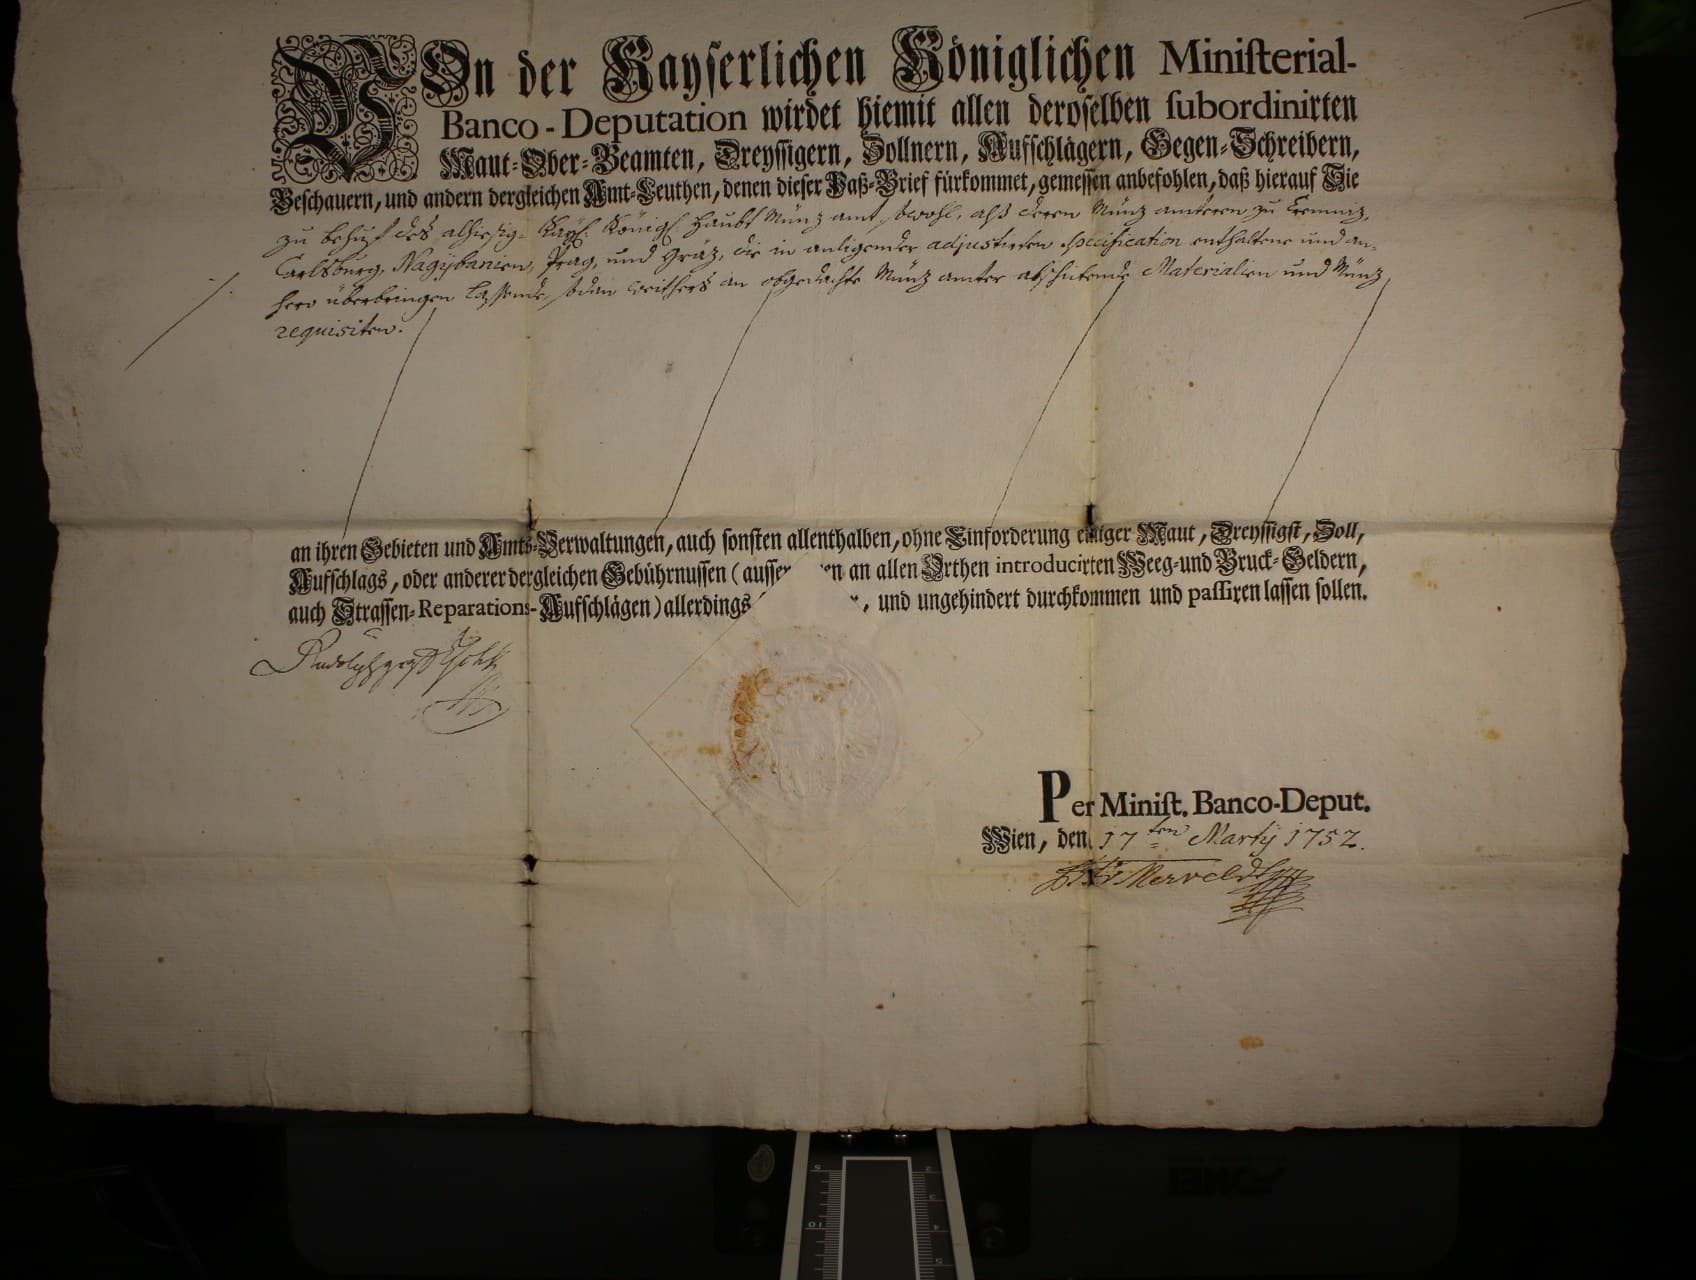 VOn der Kayserlichen Königlichen Ministerial-
Banco-Deputation wirdet hiemit allen deroselben subordinirten
Maut-Ober-Beamten, Dreyssigern, Zollnern, Aufschlägern, Gegen-Schreibern,
Beschauern, und andern dergleichen Amt-Leuthen, denen dieser Paß-Brief fürkommet, gemessen anbefohlen, daß hierauf Sie
zu behuf des alhiesig- Kayß. Königl. Haubt Münz amt sowohl, alß deren Münz ämteren zu Cremniz,
Carlsburg, Nagybanien, Prag, und Gräz, die in anligender adjustirten specification enthaltene und an-
hero überbringen lassende, sodan weithers an obgedachte Münz ämter abschikende Materialien und Münz
requisiten.
an ihren Gebieten und Amts-Verwaltungen, auch sonsten allenthalben, ohne Einforderung einiger Maut, Dreyssigst, Zoll,
Aufschlags, oder anderer dergleichen Gebührnussen (ausser an allen Orthen introducirten Weeg-und Bruck-Geldern,
auch Strassen-Reparations-Aufschlägen) allerdings , und ungehindert durchkommen und passiren lassen sollen.
Per Minist. Banco-Deput.
Wien, den 17ten Martij 1752.
Merveldt
5 2
3
10 4
5